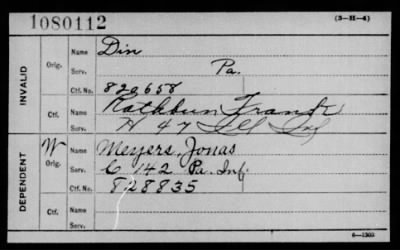 1080112
(3-H-4)
INVALID
Orig.
Name Din
Serv. Pa.
Ctf. No. 820658
Ctf.
Name Rathbun, Frank
Serv. H 47 Ill Inf
DEPENDENT
W
Orig.
Name Meyers, Jonas
Serv. C 142 Pa. Inf.
Ctf. No. 828835
Ctf.
Name
Serv.
6-1303